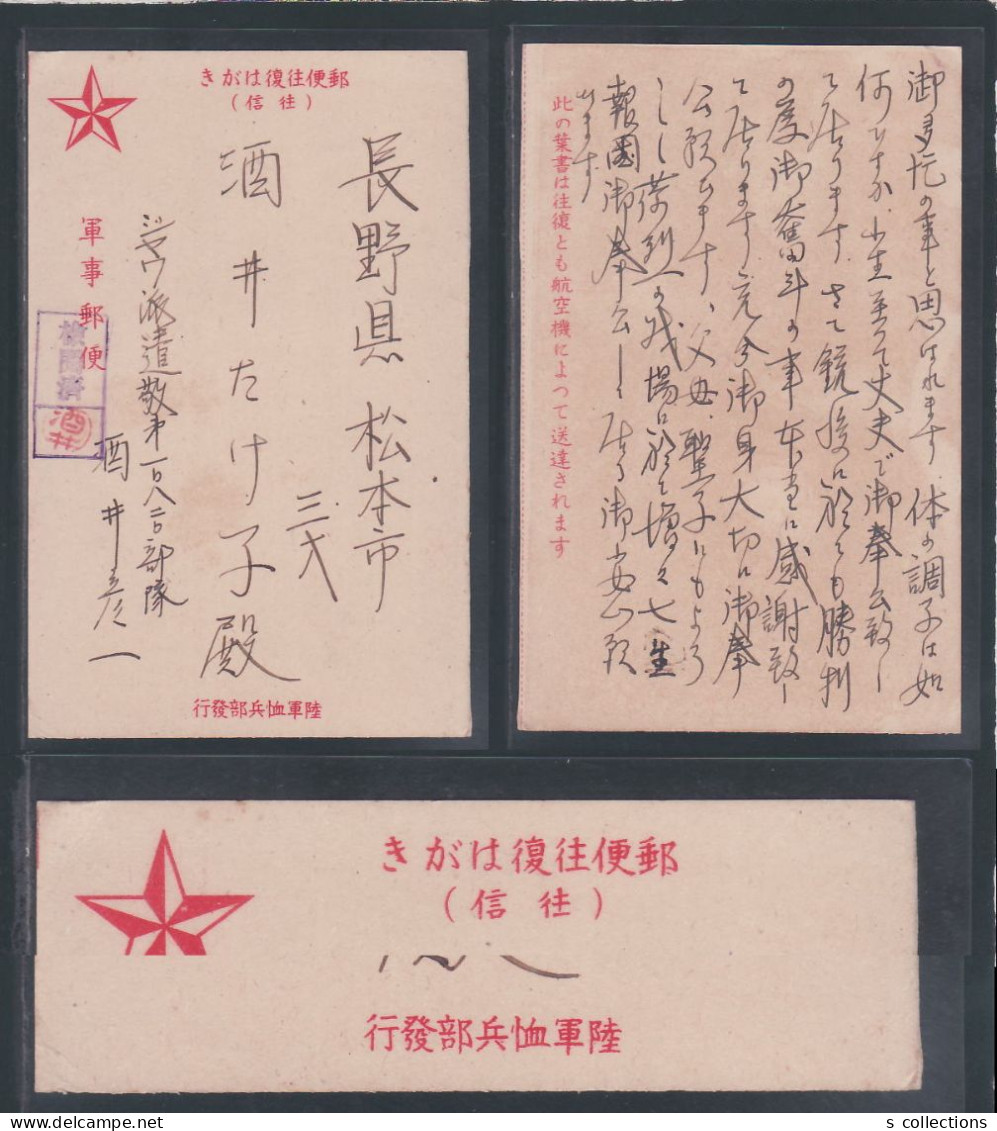 郵便往復はがき
(往信)
長野県 松本市
三才
酒井たけ子殿
ジャワ派遣敬第一〇八二〇部隊
酒井彦一
軍事郵便
検閲済
酒井
陸軍恤兵部發行
御多忙の事と思はれます 体の調子は如
何ですか 小生至って丈夫で御奉公致し
て居ります さて銃後に於ても勝利
の度御奮斗の事本当に感謝致し
て居ります 充分御身大切に御奉
公願ひます、父母、聖子にもよろ
しく 苛烈の戦場に於て増々七生
報國御奉公し居る御安心願
ひます
此の葉書は往復とも航空機によつて送達されます
郵便往復はがき
(往信)
陸軍恤兵部發行
s collections